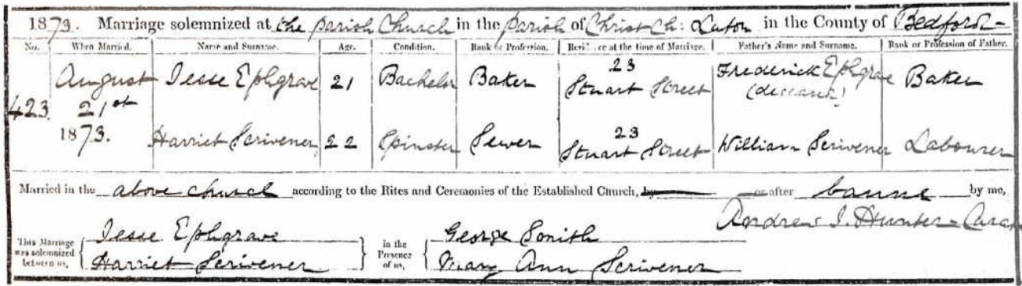 1873. Marriage solemnized at the Parish Church in the Parish of Christ Ch: Luton in the County of Bedford
No. When Married. Name and Surname. Age. Condition. Rank or Profession. Residence at the time of Marriage. Father's Name and Surname. Rank or Profession of Father.
423 August 21st 1873. Jesse Ephgrave 21 Bachelor Baker 23 Stuart Street Frederick Ephgrave (deceased) Baker
Harriet Scrivener 22 Spinster Sewer 23 Stuart Street William Scrivener Labourer
Married in the above church according to the Rites and Ceremonies of the Established Church, by or after banns by me,
Andrew J. Hunter - Curate
This Marriage was solemnized between us, Jesse Ephgrave Harriet Scrivener In the Presence of us, George Smith Mary Ann Scrivener